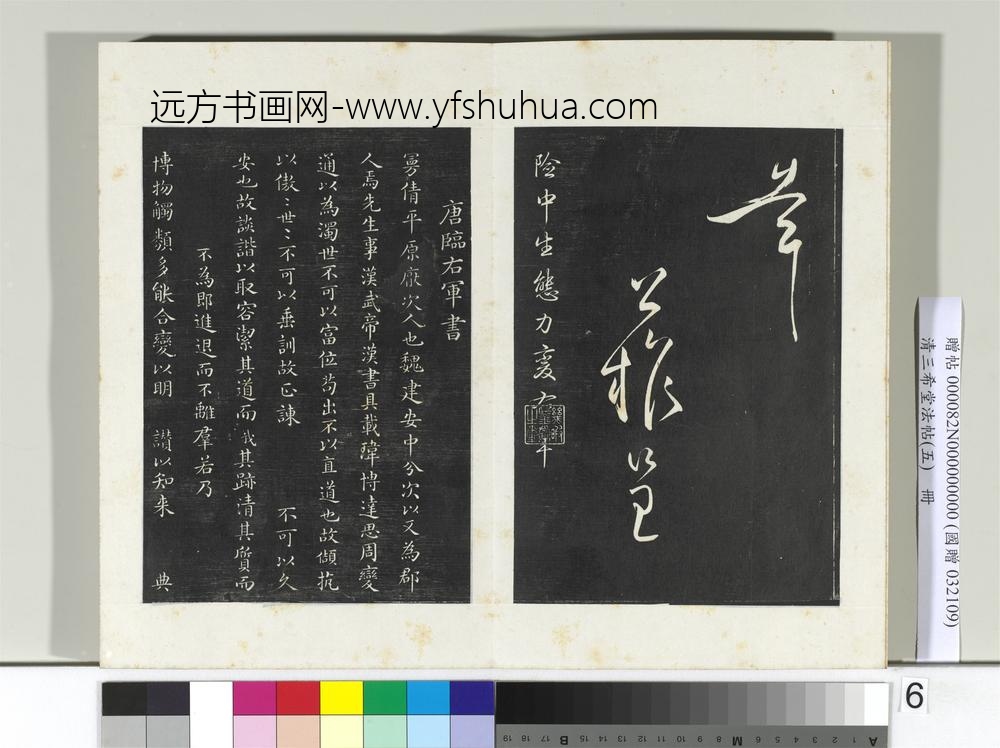 远方书画网-www.yfshuhua.com
險中生態力變右
唐臨右軍書
曼倩平原厭次人也魏建安中分次以又為郡
人焉先生事漢武帝漢書具載瑋博達思周變
通以為濁世不可以富位苟出不以直道也故傾抗
以傲〻世〻不可以垂訓故正諫 不可以久
安也故談諧以取容潔其道而 我其跡清其質而
不為耶進退而不離羣若乃
博物觸類多能合變以明 讃以知来 典
贈帖 000082N000000000 (國贈 032109)
清三希堂法帖(五) 冊
6
19 18 17 16 B 15 14 13 12 11 10 9 8 7 M 6 5 4 3 2 1 A